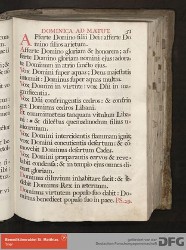 DOMINICA AD MATUT.
51
Afferte Domino filii Dei: afferte Do
mino filios arietum.
Afferte Domino gloriam & honorem; af-
ferte Domino gloriam nomini ejus adora-
te Dominum in atrio sancto ejus.
Vox Domini super aquas: Deus majestatis
intonuit: Dominus super aquas multas.
Vox Domini in virtute: vox Dñi in
Vox Dñi confringentis cedros: & confrin-
get Dominus cedros Libani.
Et comminuet eas tanquam vitulum Liba-
ni: & dilectus quemadmodum filius
Vox Domini intercidentis flammam ignis:
vox Domini concutientis desertum: & co
movebit Dominus desertum Cades.
Vox Domini præparantis cervos & reve-
labit condensa: & in templo ejus omnes di-
cent gloriam.
Dominus diluvium inhabitare facit: & se-
debit Dominus Rex in æternum.
Dominus virtutem populo suo dabit: Do-
minus benedicet populo suo in pace. Ps. 29.
DFG